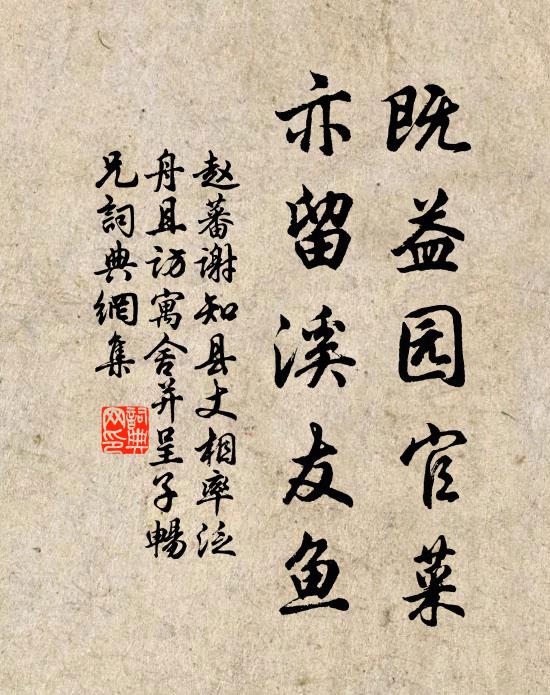 既益园官菜
亦留溪友鱼
赵蕃谢知县丈相率泛
舟且访寓舍并呈子畅
兄詞典網集
詞典
网印